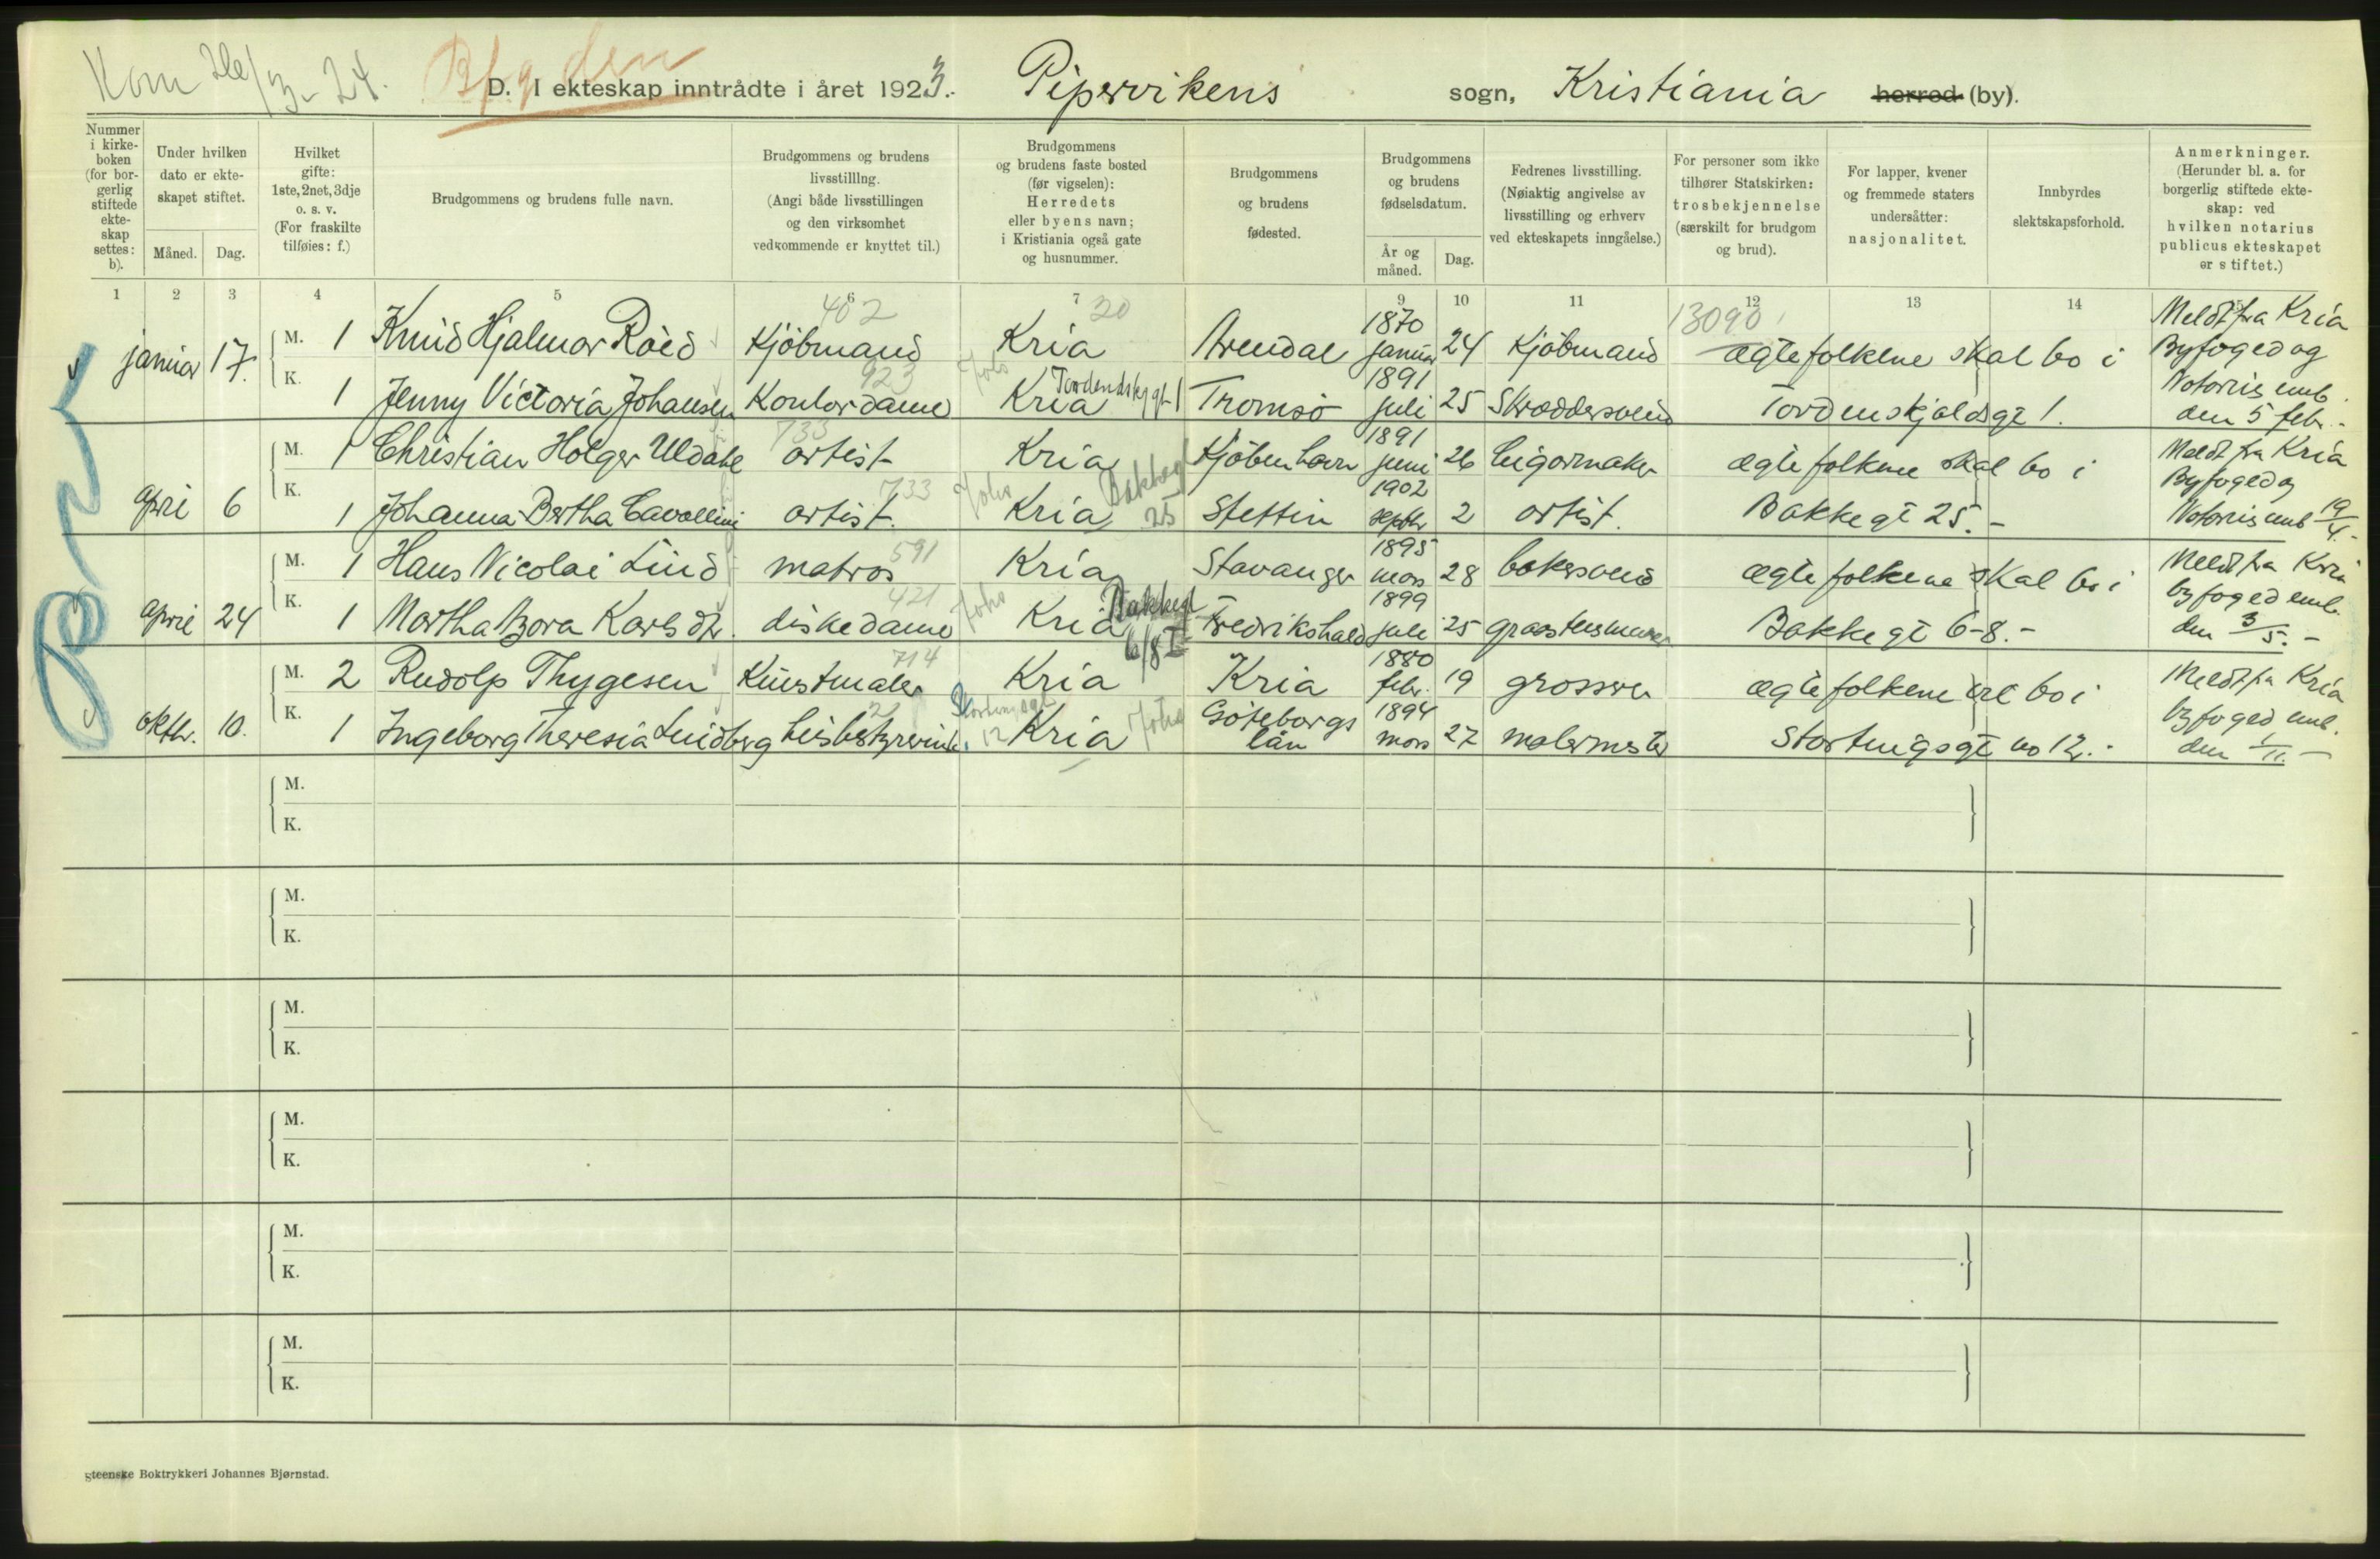 Kom 26/3-24.
Bfgden
D. I ekteskap inntrådte i året 1923. Pipervikens sogn, Kristiania herred (by).
Nummer i kirkeboken (for borgerlig stiftede ekteskap settes: b).
Under hvilken dato er ekteskapet stiftet.
Måned. Dag.
Hvilket gifte: 1ste, 2net, 3dje o. s. v. (For fraskilte tilføies: f.)
Brudgommens og brudens fulle navn.
Brudgommens og brudens livsstilllng. (Angi både livsstillingen og den virksomhet vedkommende er knyttet til.)
Brudgommens og brudens faste bosted (før vigselen): Herredets eller byens navn; i Kristiania også gate og husnummer.
Brudgommens og brudens fødested.
Brudgommens og brudens fødselsdatum.
År og måned. Dag.
Fedrenes livsstilling. (Nøiaktig angivelse av livsstilling og erhverv ved ekteskapets inngåelse.)
For personer som ikke tilhører Statskirken: trosbekjennelse (særskilt for brudgom og brud).
For lapper, kvener og fremmede staters undersåtter: nasjonalitet.
Innbyrdes slektskapsforhold.
Anmerkninger. (Herunder bl. a. for borgerlig stiftede ekteskap: ved hvilken notarius publicus ekteskapet er stiftet.)
1 2 3 4 5 6 7 9 10 11 12 13 14
402 20 1870 13090 Meldt fra Kria
januar 17. M. 1 Knud Hjalmar Röed Kjöbmand Kria Arendal januar 24 Kjöbmand ægtefolkene skal bo i Byfoged og
923 Tordenskj gt 1 1891 Notarius emb.
K. 1 Jenny Victoria Johansen Kontordame Kria Tromsö juli 25 Skræddersvend Tordenskjoldsgt 1. den 5 febr.-
733 1891 Meldt fra Kria
M. 1 Christian Holger Uldahl artist Kria Kjöbenhavn juni 26 Cigarmaker ægtefolkene skal bo i Byfoged og
733 Johs Bakkegt 25 1902
april 6 K. 1 Johanna Bertha Cavallini artist. Kria Stettin septbr 2 artist. Bakkegt 25.- Notarius emb 19/4.-
591 1895 Meldt fra Kria
M. 1 Hans Nicolai Lind matros Kria Stavanger mars 28 bakersvend ægtefolkene skal bo i byfoged emb.
421 Johs Bakkegt 6/8 I 1899
april 24 K. 1 Martha Bora Karlsdtr. diskedame Kria Fredrikshald juli 25 graastensmurer Bakkegt 6-8.- den 3/5.-
714 1880 Meldt fra Kria
M. 2 Rudolp Thygesen Kunstmaler Kria Kria febr. 19 grosserer ægtefolkene skl bo i Byfoged emb.
2 Stortingsgt 12 Johs 1894
oktbr. 10. K. 1 Ingeborg Theresia Lindberg husbestyrerinde. Kria Göteborgs län mars 27 malermester Stortingsgt no 12.- den 1/11.-
M.
K.
M.
K.
M.
K.
M.
K.
M.
K.
M.
K.
gteenske Boktrykkeri Johannes Bjørnstad.